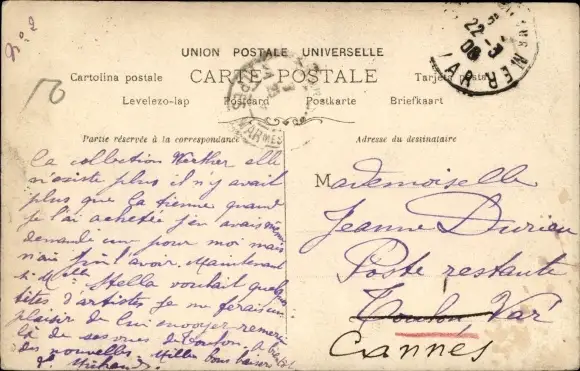 No 2
UNION POSTALE UNIVERSELLE
Cartolina postale CARTE POSTALE Tarjeta postal
Levelezo-lap Postcard Postkarte Briefkaart
Partie réservée à la correspondance
Adresse du destinataire
22 -3 06
VAR
la collection Werther elle
n'existe plus il n'y avait
plus que la tienne quand
je l'ai achetée j'en avais même
demandé une pour moi mais
n'ai pu l'avoir. Maintenant
si Mlle Stella voulait quelques
tites d'artistes je me ferais un
plaisir de lui envoyer remerci
là de ses vues de Toulon, a bientôt
des nouvelles. Mille bons baisers
Mademoiselle
Jeanne Durieu
Poste restante
Toulon Var
Cannes